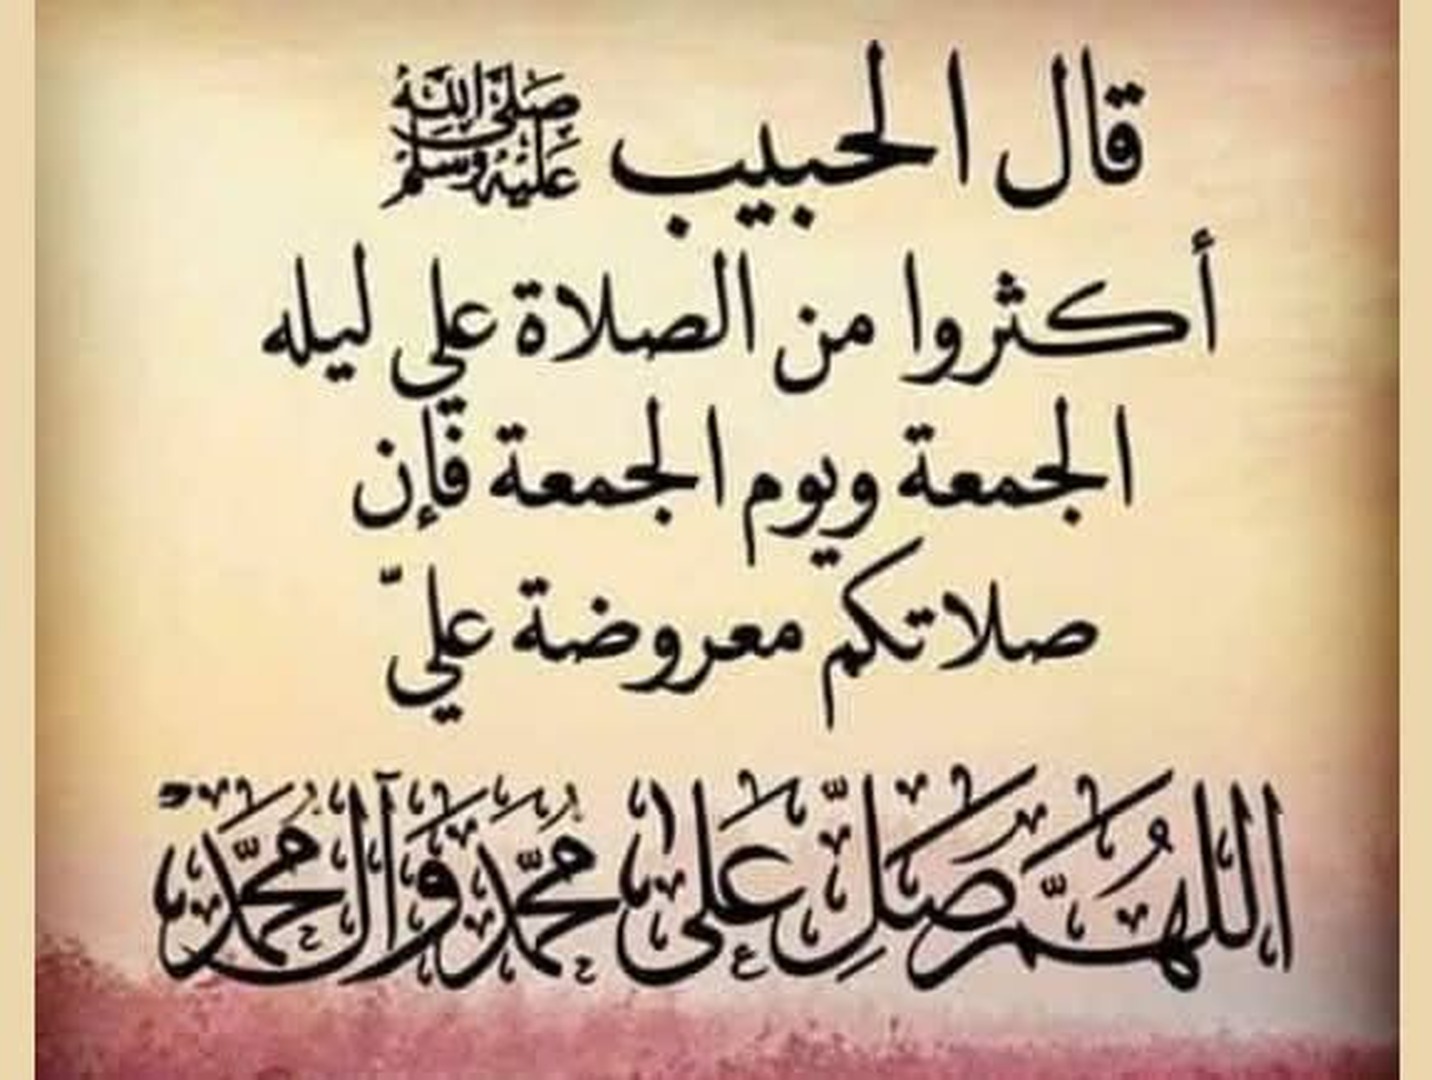 قال الحبيب صلى الله عليه وسلم
أكثروا من الصلاة علي ليله
الجمعة ويوم الجمعة فإن
صلاتكم معروضة عليّ
اللهُمَّ صَلِّ عَلى مُحَمَّد وَآل مُحَمَّد